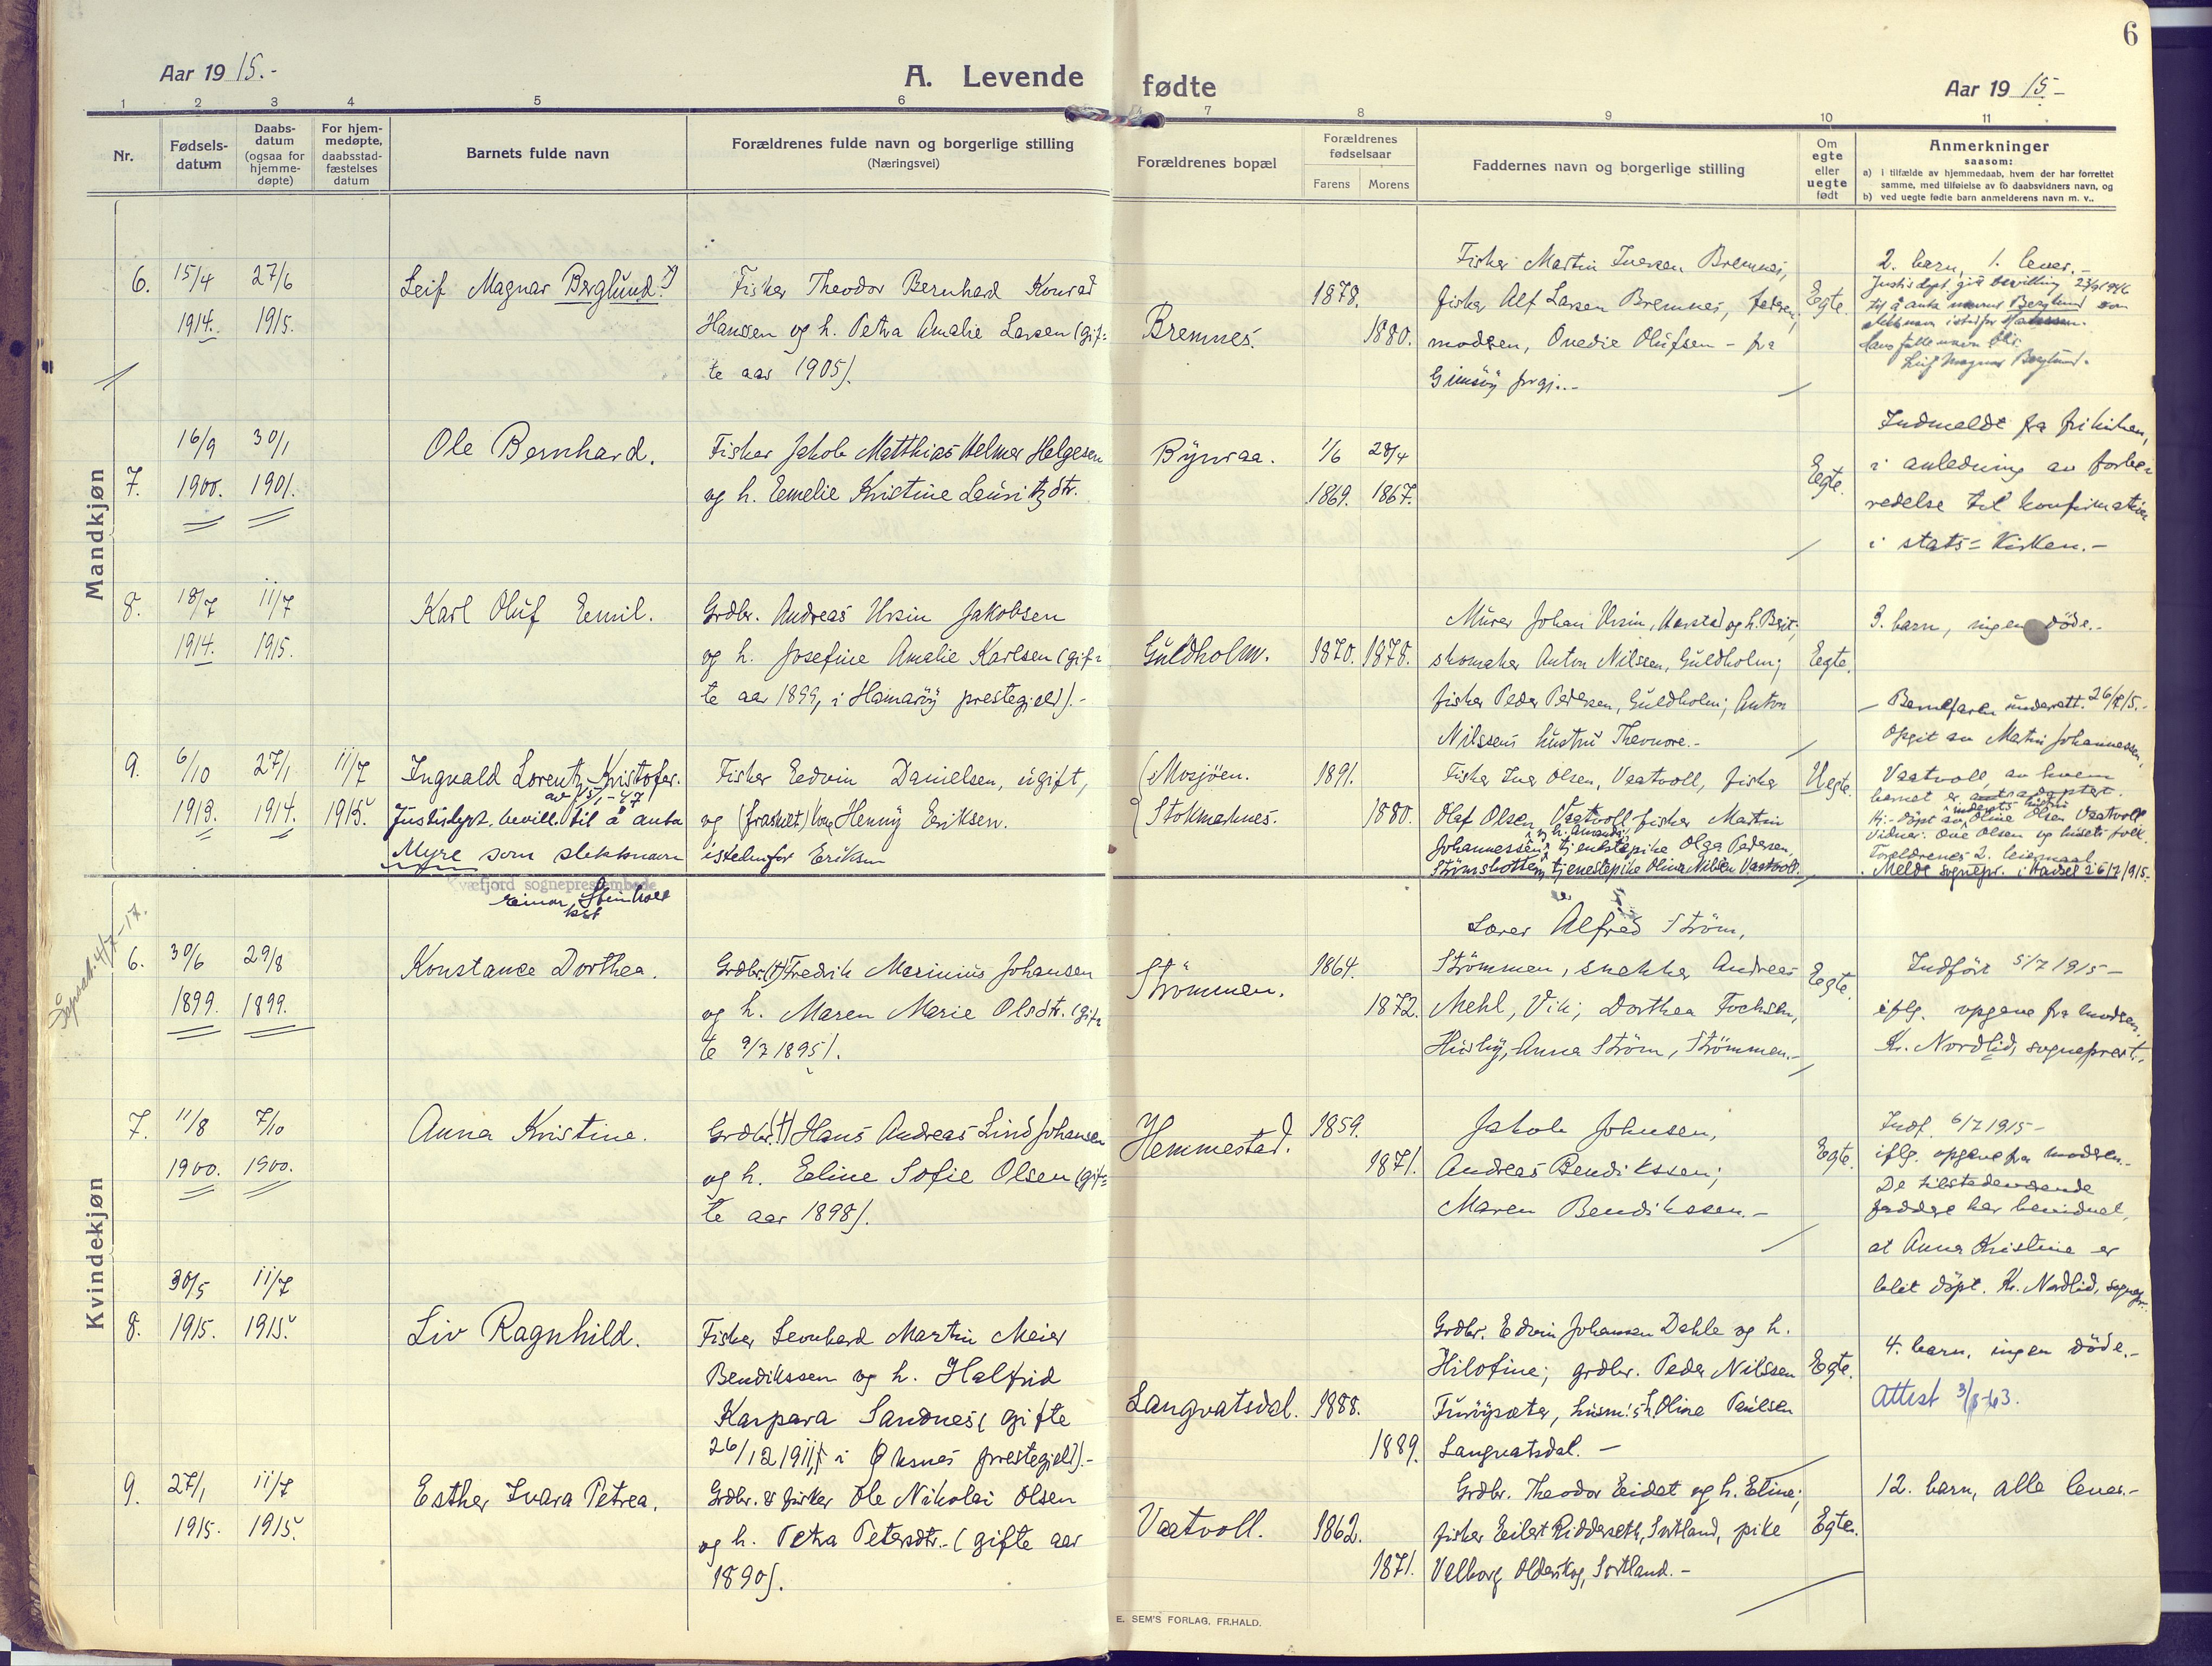 6
Aar 1915.-
A. Levende fødte
Aar 1915-
1 2 3 4 5 6 7 8 9 10 11
Nr.
Fødsels-
datum
Daabs-
datum
(ogsaa for
hjemme-
døpte)
For hjem-
medøpte,
daabsstad-
fæstelses
datum
Barnets fulde navn
Forældrenes fulde navn og borgerlige stilling
(Næringsvei)
Forældrenes bopæl
Forældrenes
fødselsaar
Farens Morens
Faddernes navn og borgerlige stilling
Om
egte
eller
uegte
født
Anmerkninger
saasom:
a) i tilfælde av hjemmedaab, hvem der har forrettet
samme, med tilføielse av to daabsvidners navn, og
b) ved uegte fødte barn anmelderens navn m. v..
Mandkjøn
6.
15/4
1914.
27/6
1915.
Leif Magnar Berglund.
Fisker Theodor Bernhard Konrad
Hansen og h. Petra Amalie Larsen (gif-
te aar 1905).
Bremnes.
1878.
1880.
Fisker Martin Iversen Bremnes,
fisker Alf Larsen Bremnes, faderen,
moderen, Ovedie Olufsen - fra
Gimsöy prgj.-
Egte.
2. barn, 1. lever.-
Justisdept. gir bevilling
til å anta navnet Berglund som
slektsnavn istedfor
Hans fulle navn blir:
Leif Magnar Berglund.
7.
16/9
1900.
30/1
1901.
Ole Bernhard.
Fisker Jakob Matthias Helmer Helgesen
og h. Emelie Kristine Lauritzdtr.
Bynraa.
1/6
1869.
28/4
1867.
Egte.
Indmeldt fra frikirken,
i anledning av forbe-
redelse til konfirmation
i stats=kirken.-
8.
18/7
1914.
11/7
1915.
Karl Oluf Emil.
Grdbr. Andreas Ursin Jakobsen
og h. Josefine Amalie Karlsen (gif-
te aar 1899, i Hamaröy prestegjeld).-
Guldholm.
1870. 1878.
Murer Johan Ursin, Harstad og h. Brit;
skomaker Anton Nilssen, Guldholm;
fisker Peder Pedersen, Guldholm; Anton
Nilssens hustru Theonore.-
Egte.
3. barn, ingen döde.-
9.
6/10
1913.
27/1
1914.
11/7
1915.
Ingvald Lorentz Kristofer.
Justisdept. bevill. til å anta
Myre som slektsnavn istedenfor Eriksen
Fisker Edvin Danielsen, ugift,
og (fraskilt) kone Henny Eriksen.
Mosjöen.
Stokmarknes.
1891.
1880.
Fisker Iver Olsen, Vaatvoll, fisker
Olaf Olsen Vaatvoll, fisker Martin
Johannessen, tjenestepike Olga Pedersen,
Strömsbotten, tjenestepike Olina Nilsen Vaatvoll.
Uegte.
Barnefaren underrett. 26/7/15.-
Opgit av Martin Johannessen,
Vaatvoll, av hvem
barnet er adoptert.
Hj.-döpt av Oline Olsen Vaatvoll
Vidner: Ove Olsen og husets folk.
Forældrenes 2. leiermaal.
Meldt sognepr. i Hadsel 26/7/915.
Kvæfjord sogneprestembede
Einar Steinholt
Kvindekjøn
6.
30/6
1899.
29/8
1899.
Konstance Dorthea.
Grdbr. (†) Fredrik Marinius Johansen
og h. Maren Marie Olsdtr. (gif-
te 9/7 1895).
Strömmen.
1864.
1872.
Lærer Alfred Ström,
Strömmen, snekker Andreas
Mehl, Vik; Dorthea Fochsen,
Husby, Anna Ström, Strömmen.-
Egte.
Indfört 5/7 1915-
iflg. opgave fra moderen.
Kr. Nordlid, sogneprest.
7.
11/8
1900.
7/10
1900.
Anna Kristine.
Grdbr. (†) Hans Andreas Lind Johansen
og h. Eline Sofie Olsen (gif-
te aar 1898).
Hemmestad.
1859.
1871.
Jakob Johnsen,
Andreas Bendikssen;
Maren Bendikssen.-
Egte.
Indf. 6/7 1915-
iflg. opgave fra moderen.-
De tilstedeværende
faddere har bevidnet,
at Anna Kristine er
blit döpt. Kr. Nordlid, sognepr.
8.
30/5
1915.
11/7
1915.
Liv Ragnhild.
Fisker Leonhard Martin Meier
Bendikssen og h. Halfrid
Kaspara Sandnes (gifte
26/12 1911, i Øksnes prestegjeld).-
Langvatsdal.
1888.
1889.
Grdbr. Edvin Johansen Dahle og h.
Hilofine; grdbr. Peder Nilssen
Furöysæter, husm.s h. Oline Paulsen
Langvatsdal.-
Egte.
4. barn, ingen döde.-
Attest 3/8-63.
9.
27/1
1915.
11/7
1915.
Esther Ivara Petrea.
Grdbr. & fisker Ole Nikolai Olsen
og h. Petra Petersdtr.- (gifte aar
1890).
Vaatvoll.
1862.
1871.
Grdbr. Theodor Eidet og h. Eline;
fisker Eilert Ridderseth, Sortland, pike
Valborg Olderskog, Sortland.-
Egte.
12. barn, alle lever.-
E. SEM'S FORLAG, FR.HALD.